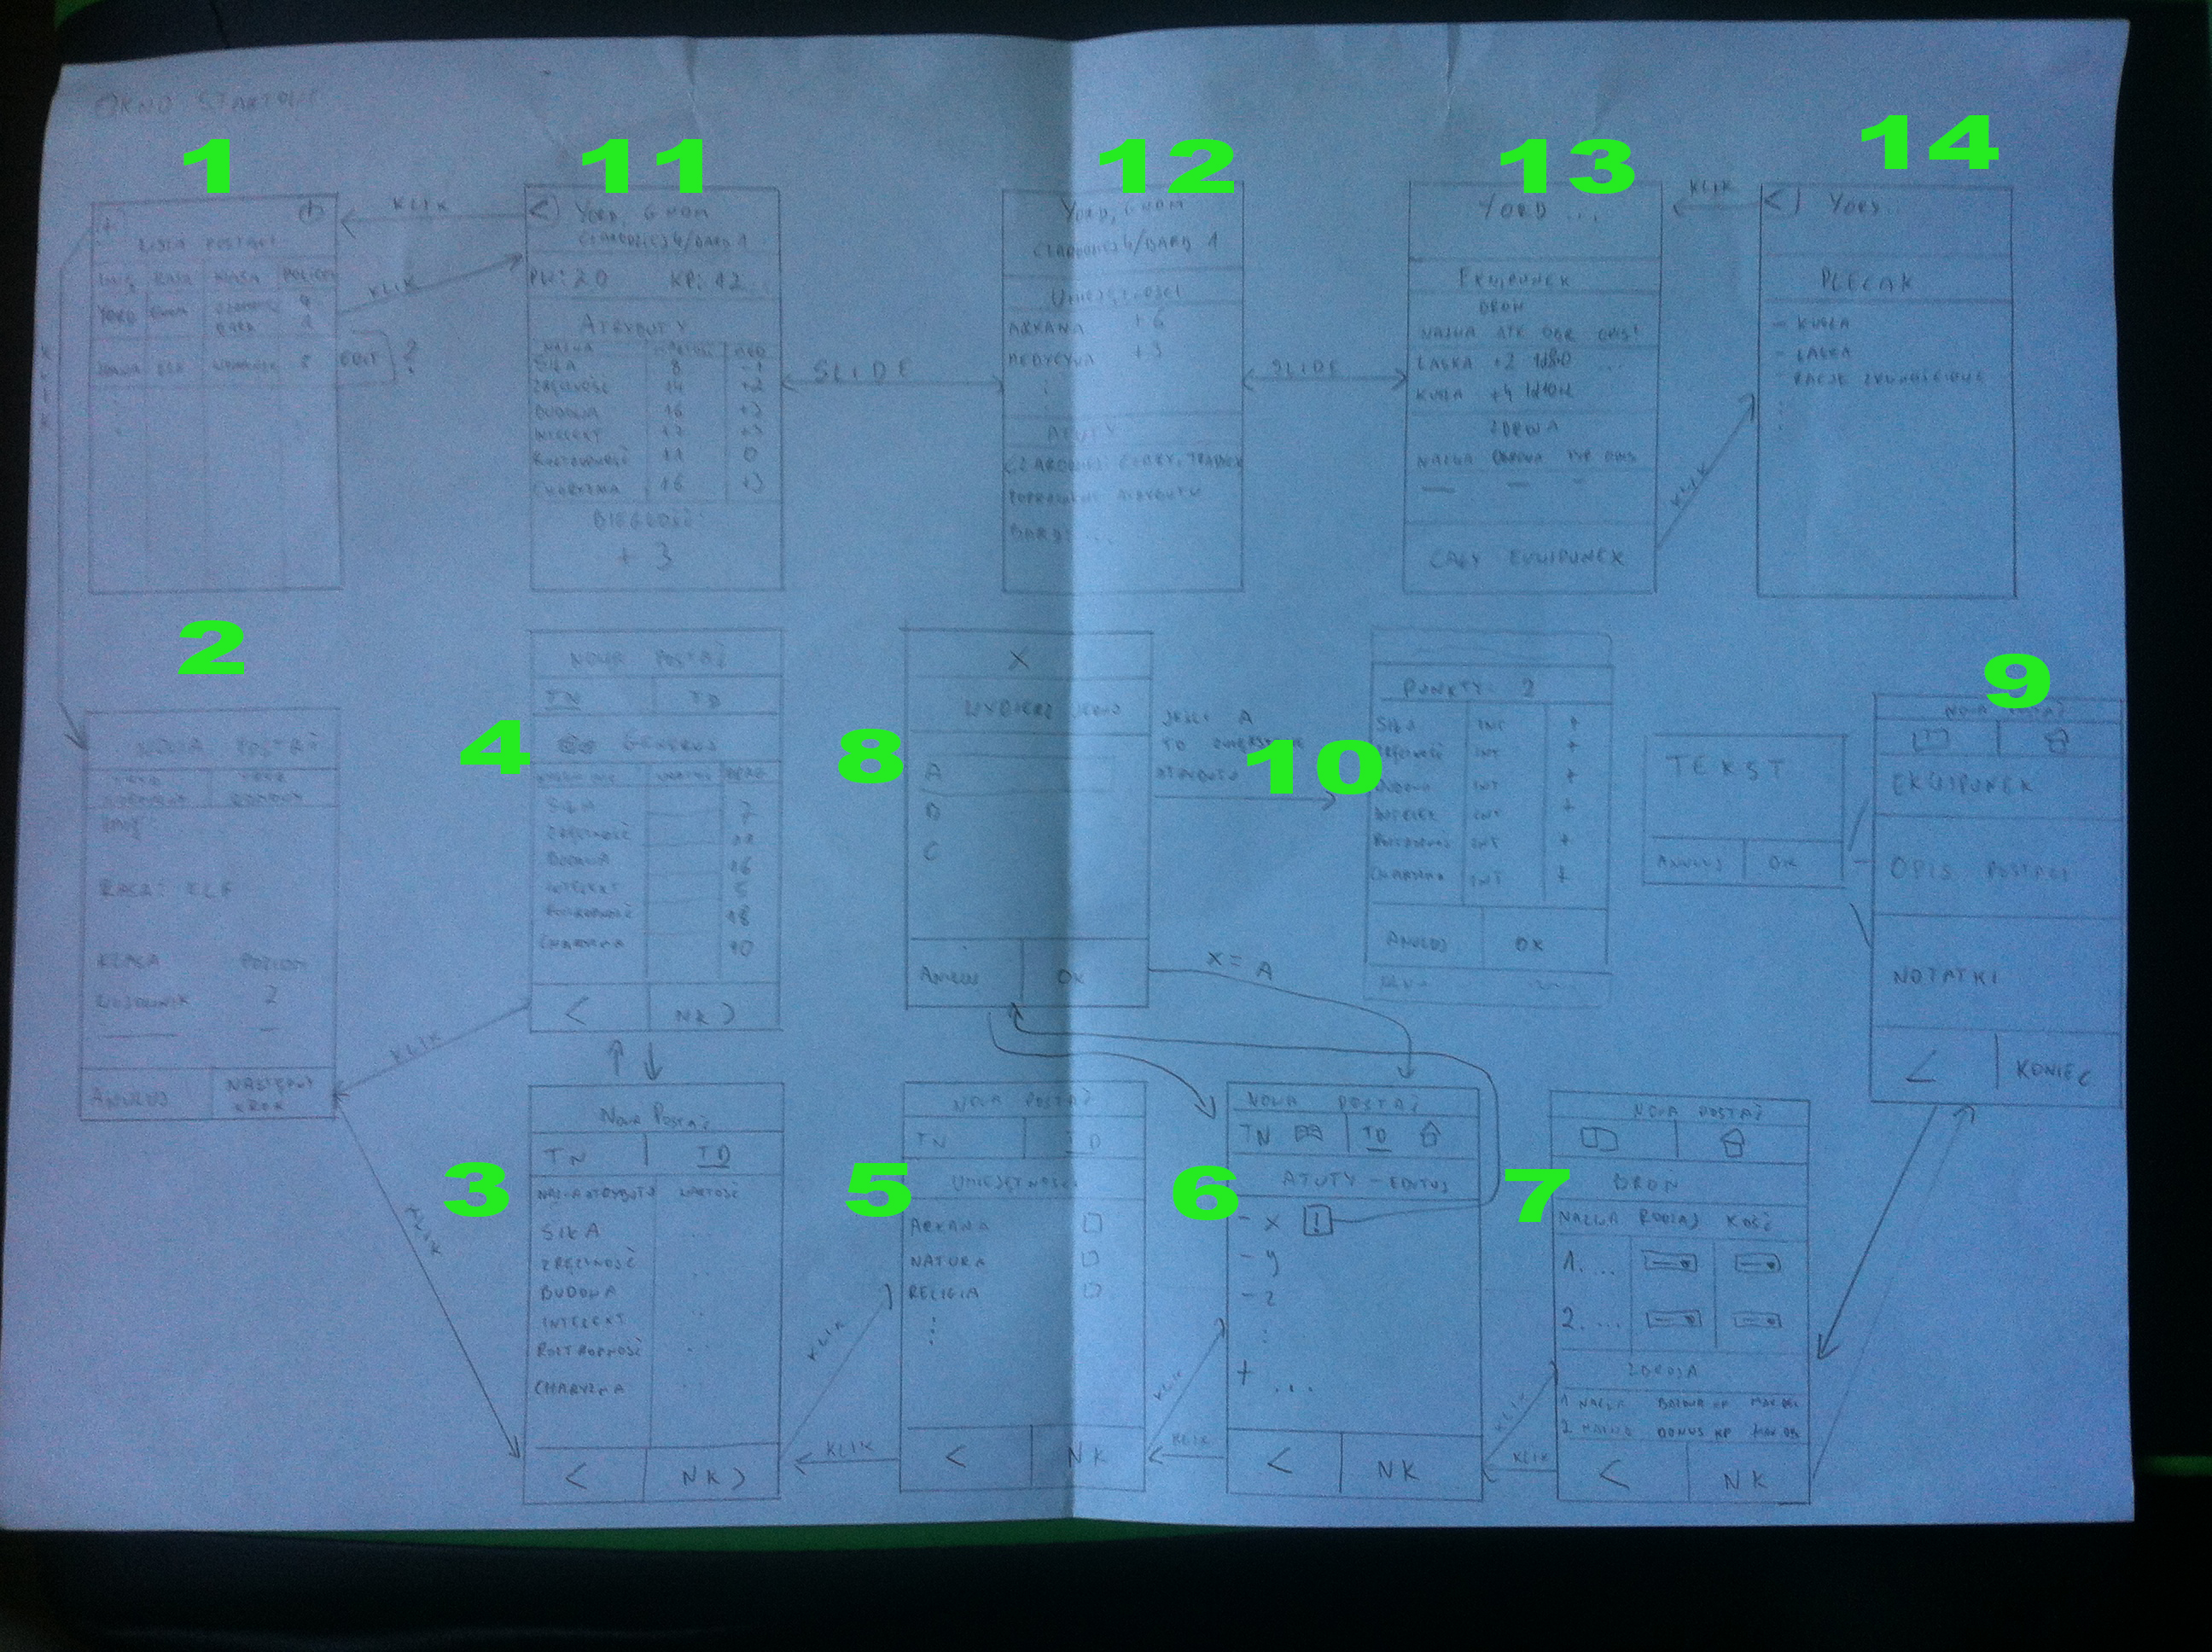 OKNO STARTOWE
1
LISTA POSTACI
IMIĘ RASA KLASA POZIOM
YORD GNOM
BARD 1
EDIT ?
KLIK
KLIK
KLIK
11
< YORD, GNOM
CZARODZIEJ 4/BARD 1
PW: 20 KP: 12
ATRYBUTY
NAZWA WARTOŚĆ MOD
SIŁA 8 -1
ZRĘCZNOŚĆ 14 +2
BUDOWA 16 +3
INTELEKT 17 +3
ROZTROPNOŚĆ 11 0
CHARYZMA 16 +3
BIEGŁOŚĆ:
+3
SLIDE
12
YORD, GNOM
CZARODZIEJ 4/BARD 1
UMIEJĘTNOŚCI
ARKANA +6
MEDYCYNA +3
ATUTY
BARD: ...
SLIDE
13
YORD ...
EKWIPUNEK
BROŃ
NAZWA ATK OBR OPIS
LASKA +2 1d8+0 ...
KUSZA +4
ZBROJA
NAZWA OBRONA TYP OPIS
— — -
CAŁY EKWIPUNEK
KLIK
KLIK
14
< YORD
PLECAK
- KUSZA
- LASKA
- RACJE ŻYWNOŚCIOWE
2
NOWA POSTAĆ
IMIĘ
RASA: ELF
KLASA POZIOM
WOJOWNIK 2
ANULUJ NASTĘPNY KROK
KLIK
KLIK
4
NOWA POSTAĆ
TN TD
GENERUJ
SIŁA 7
ZRĘCZNOŚĆ 11
BUDOWA 16
INTELEKT 5
ROZTROPNOŚĆ 18
CHARYZMA 10
< NK >
8
X
WYBIERZ JEDNO
A
B
C
ANULUJ OK
JEŚLI A
TO ZWIĘKSZENIE
ATRYBUTU
X = A
10
PUNKTY: 2
SIŁA INT +
ZRĘCZNOŚĆ INT +
BUDOWA INT +
INTELEKT INT +
ROZTROPNOŚĆ INT +
CHARYZMA INT +
ANULUJ OK
TEKST
ANULUJ OK
9
NOWA POSTAĆ
EKWIPUNEK
OPIS POSTACI
NOTATKI
< KONIEC
3
NOWA POSTAĆ
TN TD
NAZWA ATRYBUTU WARTOŚĆ
SIŁA ...
ZRĘCZNOŚĆ ..
BUDOWA
INTELEKT
ROZTROPNOŚĆ
CHARYZMA
< NK >
KLIK
KLIK
5
NOWA POSTAĆ
TN TD
UMIEJĘTNOŚCI
ARKANA
NATURA
RELIGIA
< NK
KLIK
KLIK
6
NOWA POSTAĆ
TN TD
ATUTY - EDYTUJ
- X !
- Y
- Z
+ ...
< NK
KLIK
KLIK
7
NOWA POSTAĆ
BROŃ
NAZWA RODZAJ KOŚĆ
1. ...
2. ...
ZBROJA
1 NAZWA BAZOWA KP
2. NAZWA BONUS KP
< NK